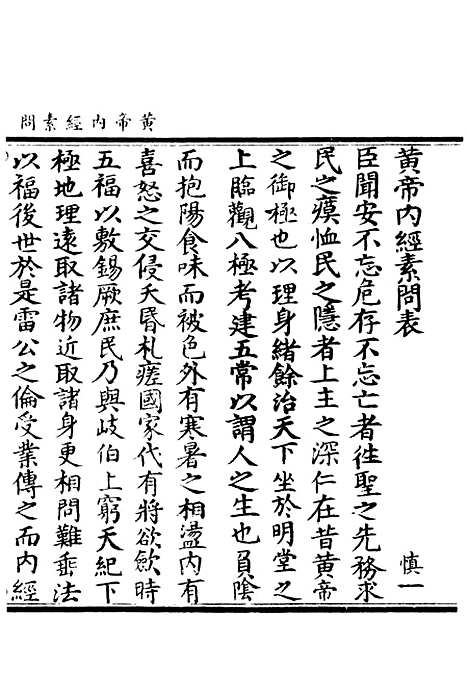 黄帝内經素問
黄帝内經素問表
慎一
臣聞安不忘危存不忘亡者徃聖之先務求
民之瘼恤民之隱者上主之深仁在昔黄帝
之御極也以理身緒餘治天下坐於明堂之
上臨觀八極考建五常以謂人之生也負陰
而抱陽食味而被色外有寒暑之相盪内有
喜怒之交侵夭昏札瘥國家代有將欲歛時
五福以敷錫厥庶民乃與岐伯上窮天紀下
極地理遠取諸物近取諸身更相問難垂法
以福後世於是雷公之倫受業傳之而内經